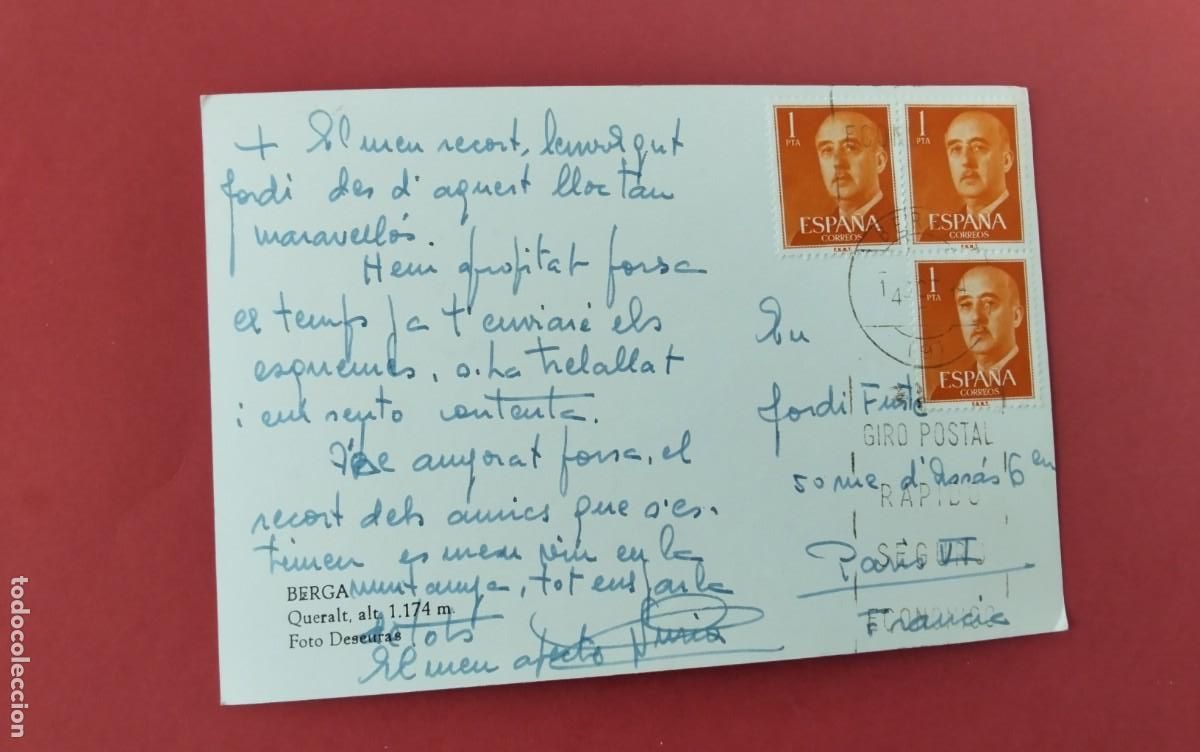 + El meu recort, benvolgut
Jordi des d'aquest lloc tan
maravellós.
Hem profitat forsa
el temps ja t'enviaré els
esquemes, s.ha treballat
i em sento contenta.
T'he anyorat forsa, el
recort dels amics que s'es.
timen es meu viu en la
muntanya, tot ens parla
de tots
El meu afecto Nuria
BERGA
Queralt, alt. 1.174 m.
Foto Deseuras
1 PTA
ESPAÑA
CORREOS
F.N.M.T.
1 PTA
ESPAÑA
CORREOS
F.N.M.T.
1 PTA
ESPAÑA
CORREOS
F.N.M.T.
En
Jordi
50 rue d'Assás 6 em
Paris VI
Francia
GIRO POSTAL
RAPIDO
SEGURO
ECONOMICO
todocoleccion